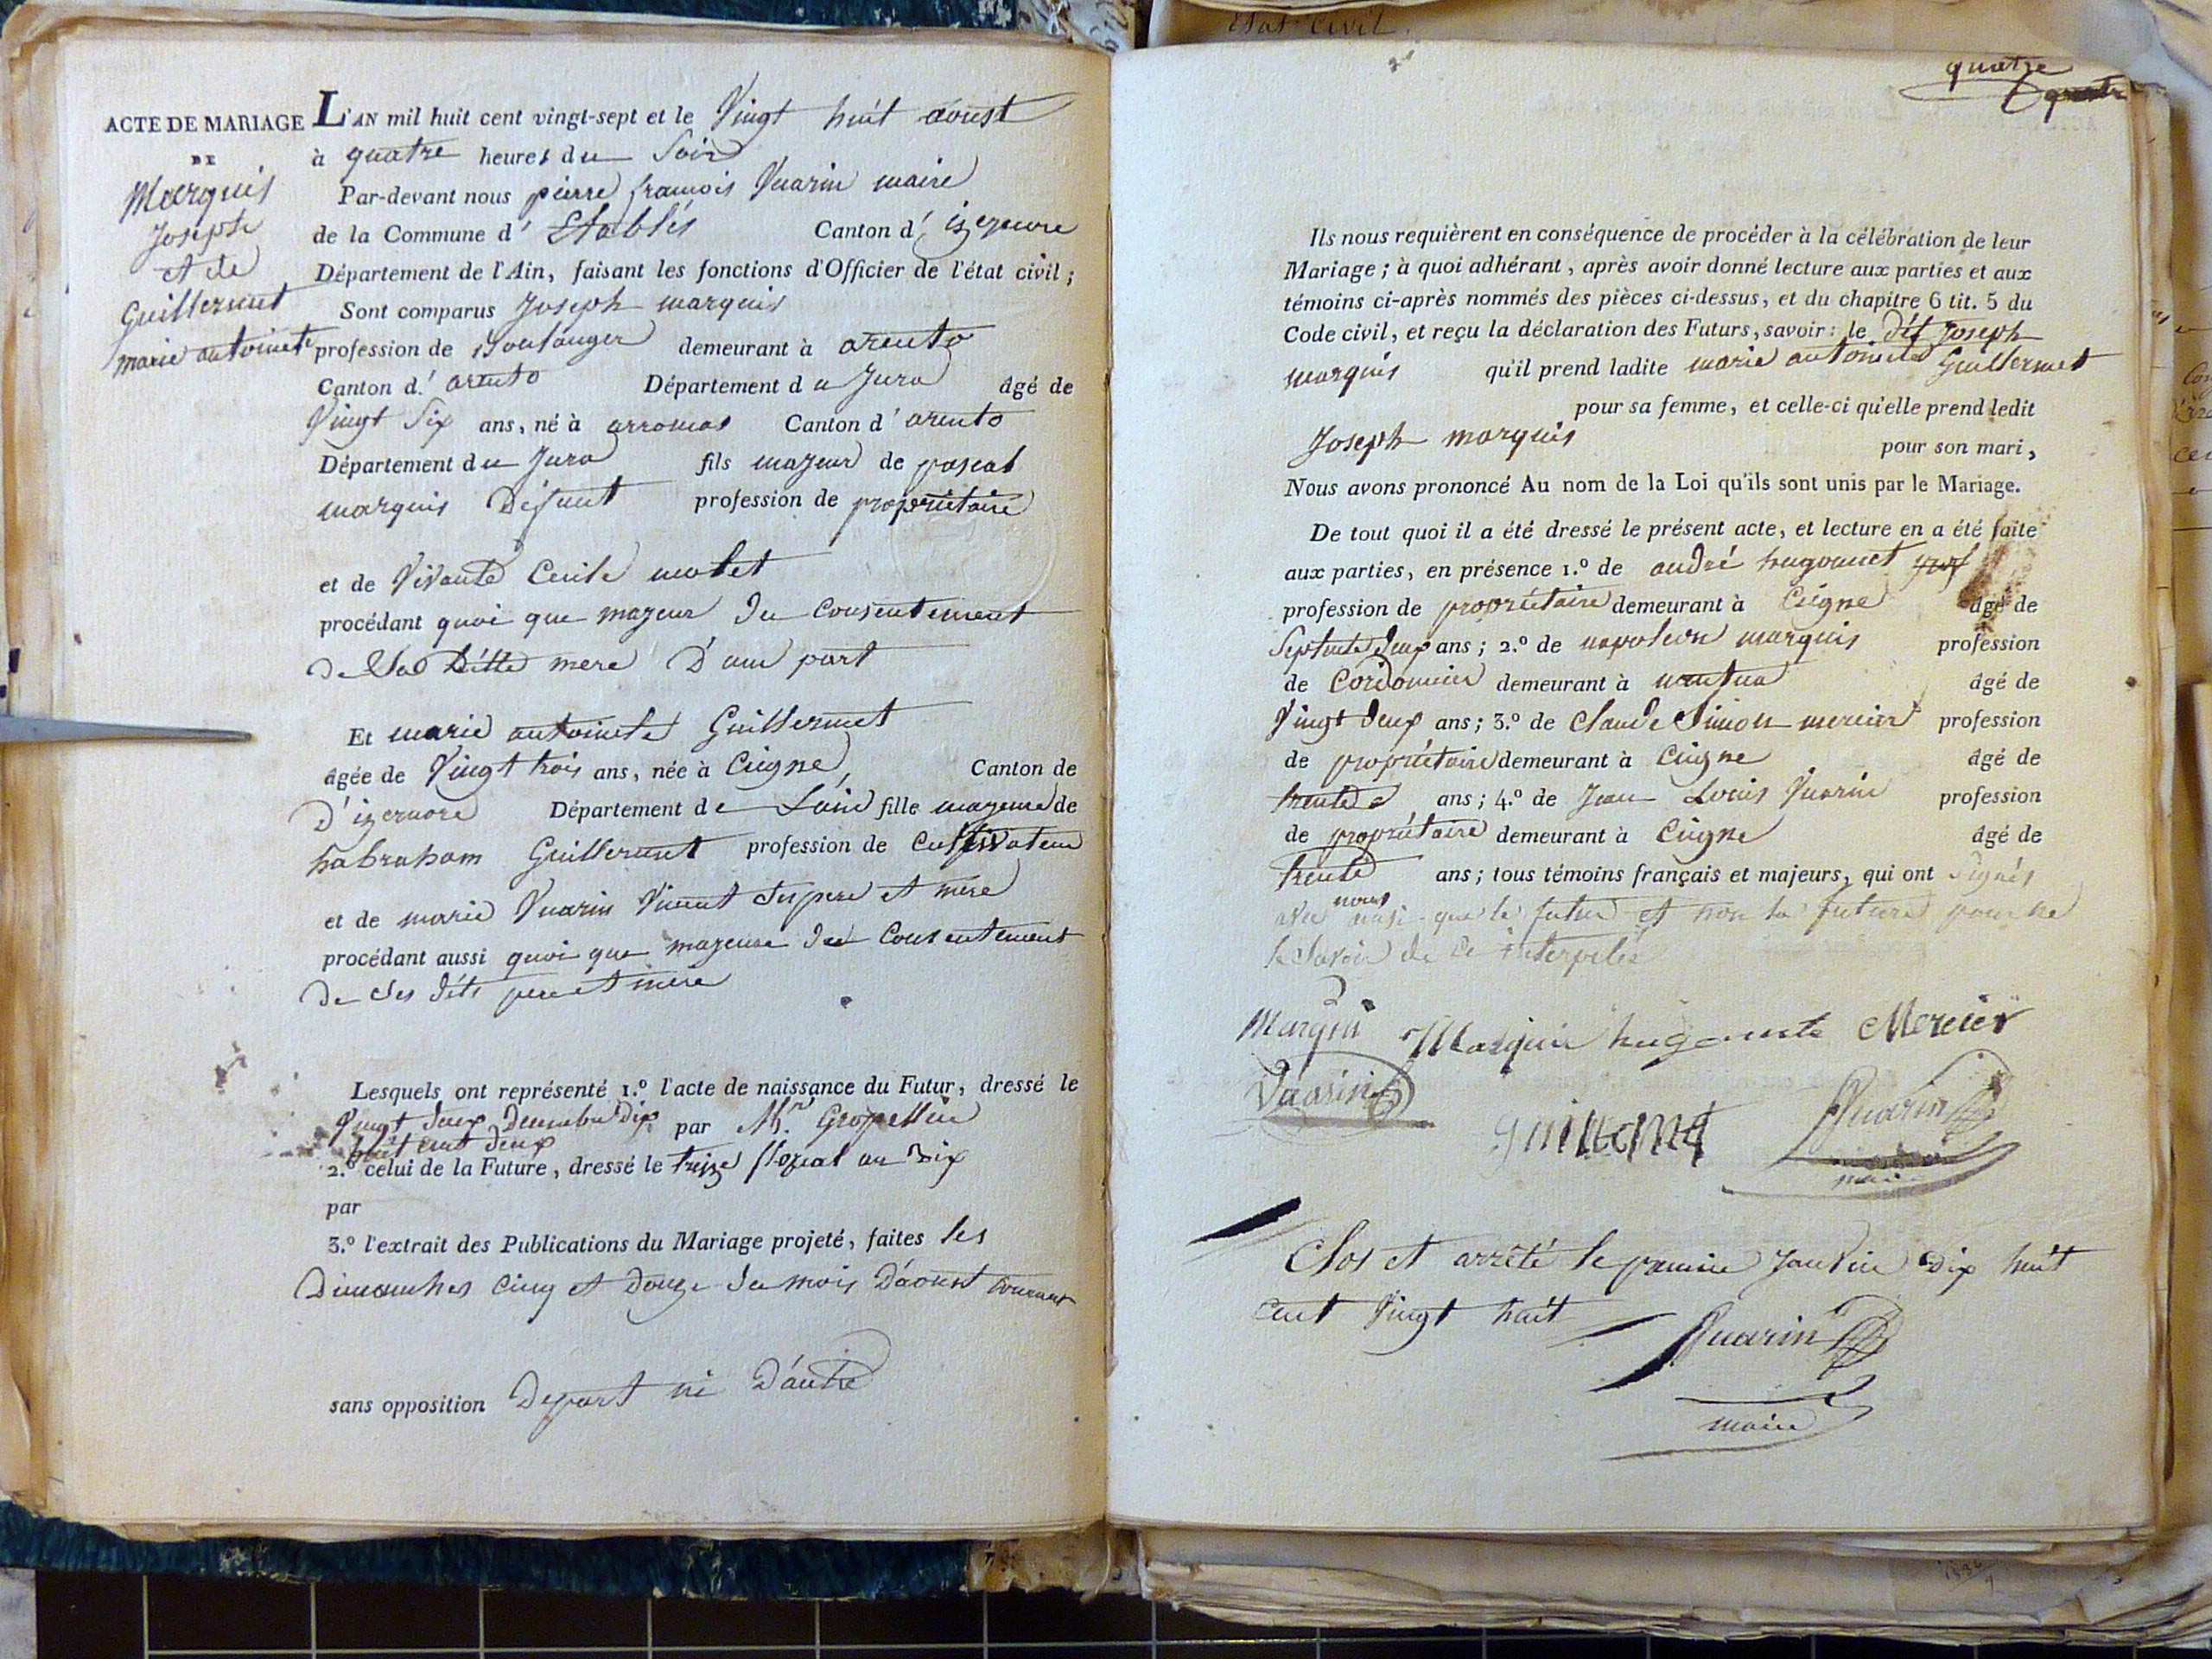 Etat Civil
ACTE DE MARIAGE
DE
Marquis
Joseph
et de
Guillermet
marie antoinete
L'AN mil huit cent vingt-sept et le Vingt huit aoust
à quatre heures du Soir
Par-devant nous pierre francois Vuarin maire
de la Commune d' Etables Canton d'
Département de l'Ain, faisant les fonctions d'Officier de l'état civil ;
Sont comparus Joseph marquis
profession de Boulanger demeurant à arento
Canton d' arento Département du Jura âgé de
Vingt Six ans, né à arromas Canton d' arento
Département du Jura fils majeur de pascal
marquis Défunt profession de propriétaire
et de Vivante Cecile molet
procédant quoi que majeur du Consentement
de Sa ditte mere D'une part
Et marie antoinete Guillermet
âgée de Vingt trois ans, née à Ceigne Canton de
D'izernore Département de Lain fille majeure de
habraham Guillermet profession de Cultivateur
et de marie Vuarin Vivent Ses pere et mere
procédant aussi quoi que majeure du Consentement
de Ses dits pere et mere
Lesquels ont représenté 1.º l'acte de naissance du Futur, dressé le
Vingt deux Decembre Dix par Mr. Gropellin
huit cent deux
2.º celui de la Future, dressé le treize floreal an Dix
par
3.º l'extrait des Publications du Mariage projeté, faites les
Dimanches Cinq et Douze du mois D'aoust Courant
sans opposition Depart ni D'autre
quatre
quatre
Ils nous requièrent en conséquence de procéder à la célébration de leur
Mariage ; à quoi adhérant, après avoir donné lecture aux parties et aux
témoins ci-après nommés des pièces ci-dessus, et du chapitre 6 tit. 5 du
Code civil, et reçu la déclaration des Futurs, savoir : le dit Joseph
marquis qu'il prend ladite marie antoinete Guillermet
pour sa femme, et celle-ci qu'elle prend ledit
Joseph marquis pour son mari,
Nous avons prononcé Au nom de la Loi qu'ils sont unis par le Mariage.
De tout quoi il a été dressé le présent acte, et lecture en a été faite
aux parties, en présence 1.º de andré hugonnet
profession de propriétaire demeurant à Ceigne âgé de
Septente deux ans ; 2.º de napoleon marquis profession
de Cordonnier demeurant à nantua âgé de
Vingt deux ans ; 3.º de Claude Simon mercier profession
de propriétaire demeurant à Ceigne âgé de
trente ans ; 4.º de Jean Louis Vuarin profession
de propriétaire demeurant à Ceigne âgé de
trente ans ; tous témoins français et majeurs, qui ont Signés
avec nous ainsi que le futur et non la future pour ne
le Savoir de ce interpelée
Marquis Marquis hugonnete Mercier
Vuarin
guillermet
Vuarin
maire
Clos et arrêté le premier Janvier Dix huit
Cent Vingt huit
Vuarin
maire